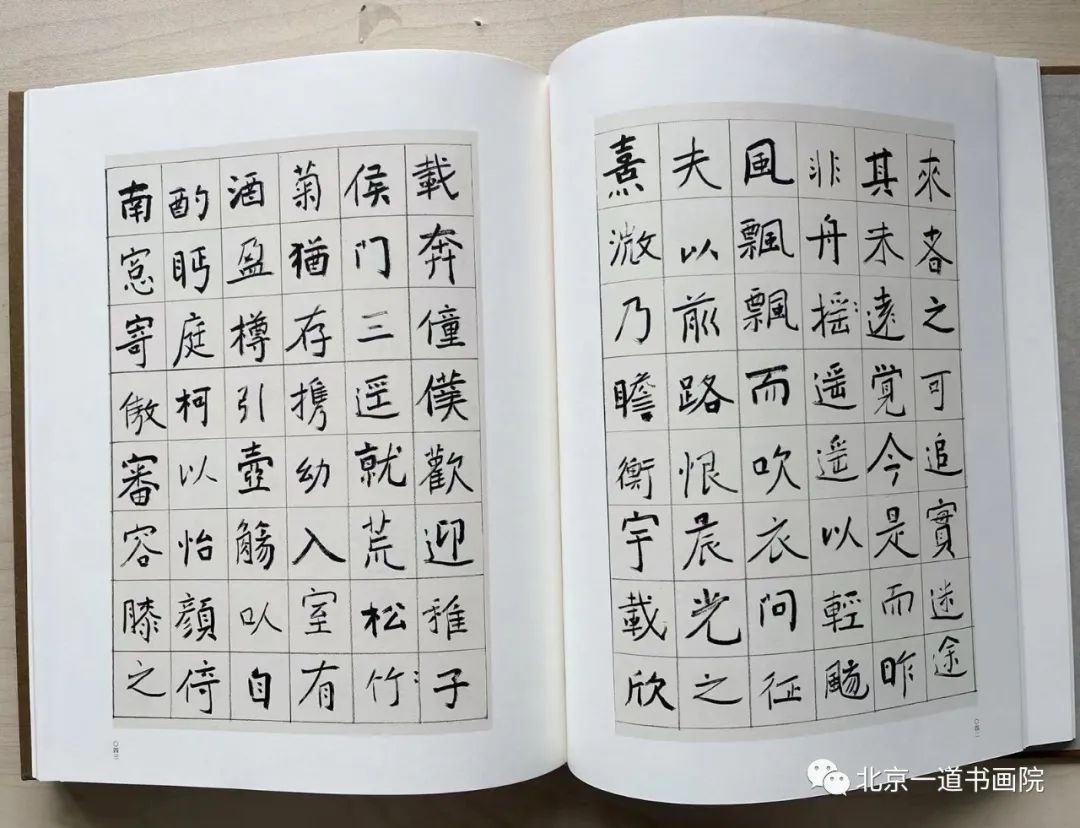 來者之可追實迷途
其未遠覺今是而昨
非舟摇遥遥以輕颺
風飄飄而吹衣问征
夫以前路恨晨光之
熹微乃瞻衡宇載欣
〇四二
載奔僮僕歡迎稚子
侯门三逕就荒松竹
菊猶存携幼入室有
酒盈樽引壺觴以自
酌眄庭柯以怡顔倚
南窓寄傲審容膝之
〇四三
北京一道书画院